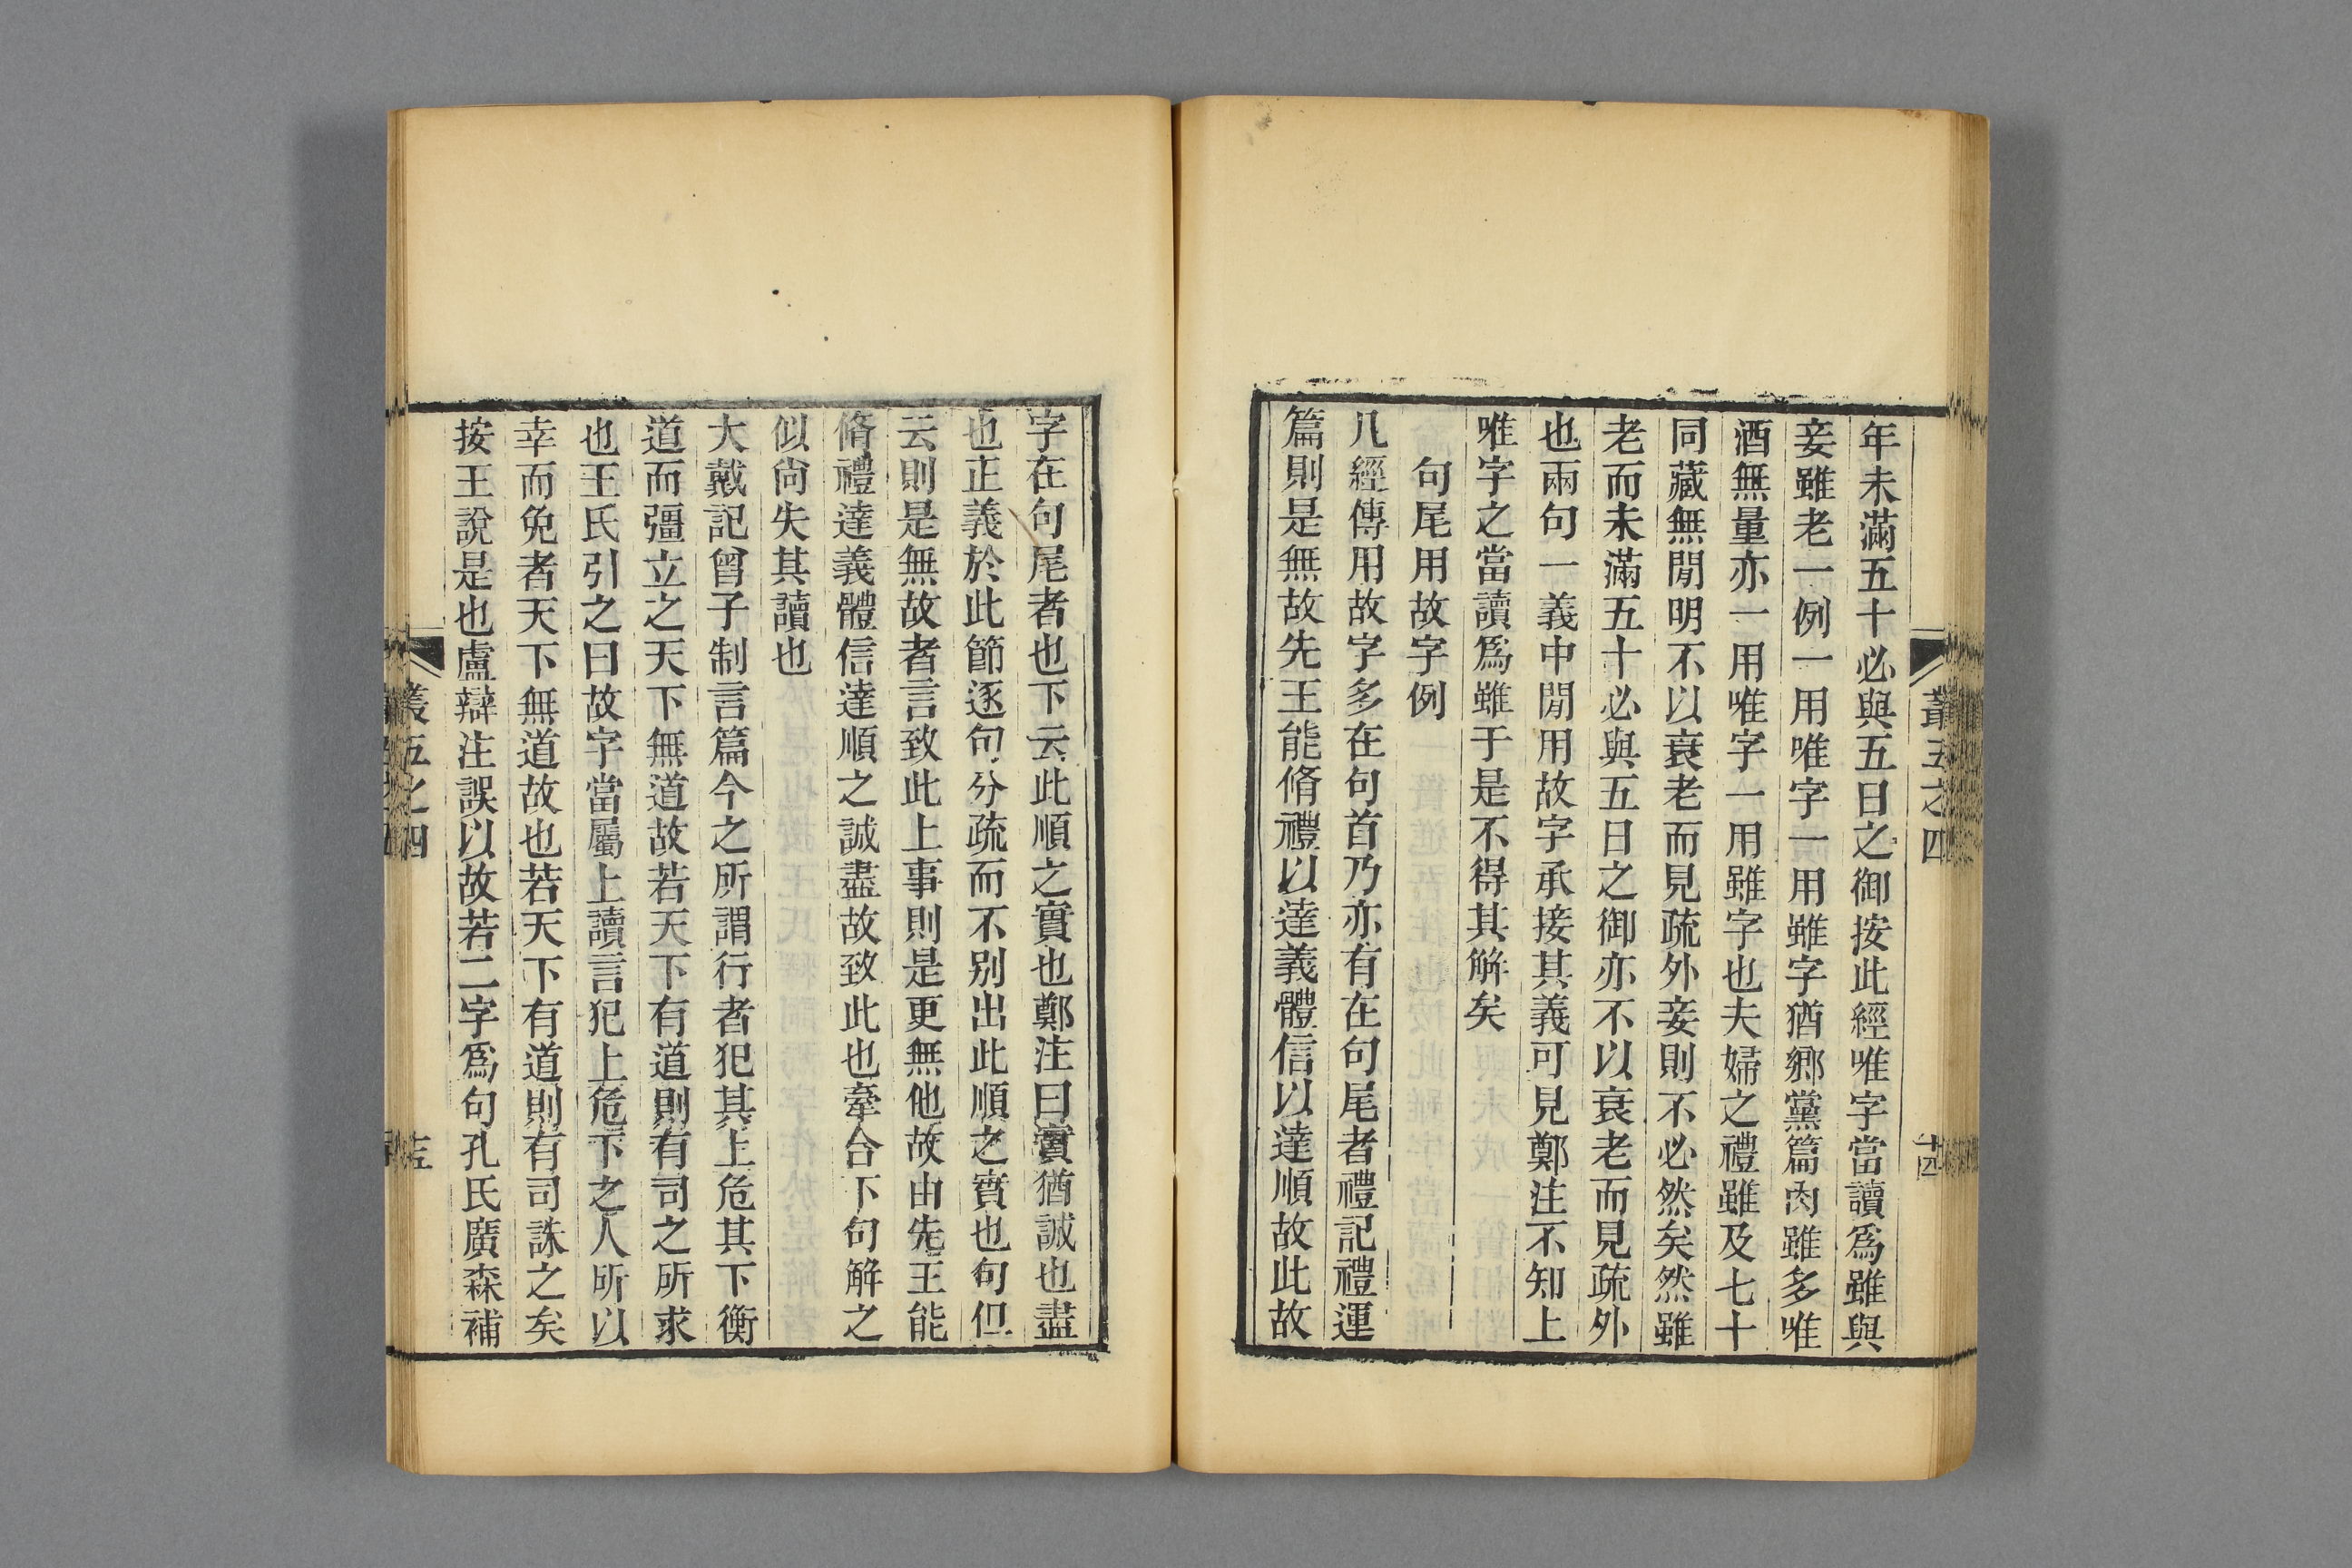 年未滿五十必與五日之御按此經唯字當讀爲雖與
妾雖老一例一用唯字一用雖字猶鄉黨篇肉雖多唯
酒無量亦一用唯字一用雖字也夫婦之禮雖及七十
同藏無閒明不以衰老而見疏外妾則不必然矣然雖
老而未滿五十必與五日之御亦不以衰老而見疏外
也兩句一義中閒用故字承接其義可見鄭注不知上
唯字之當讀爲雖于是不得其解矣
句尾用故字例
凡經傳用故字多在句首乃亦有在句尾者禮記禮運
篇則是無故先王能脩禮以達義體信以達順故此故
叢五之四
十四
字在句尾者也下云此順之實也鄭注曰實猶誠也盡
也正義於此節逐句分疏而不别出此順之實也句但
云則是無故者言致此上事則是更無他故由先王能
脩禮達義體信達順之誠盡故致此也牽合下句解之
似尚失其讀也
大戴記曾子制言篇今之所謂行者犯其上危其下衡
道而彊立之天下無道故若天下有道則有司之所求
也王氏引之曰故字當屬上讀言犯上危下之人所以
幸而免者天下無道故也若天下有道則有司誅之矣
按王說是也盧辯注誤以故若二字爲句孔氏廣森補
叢五之四